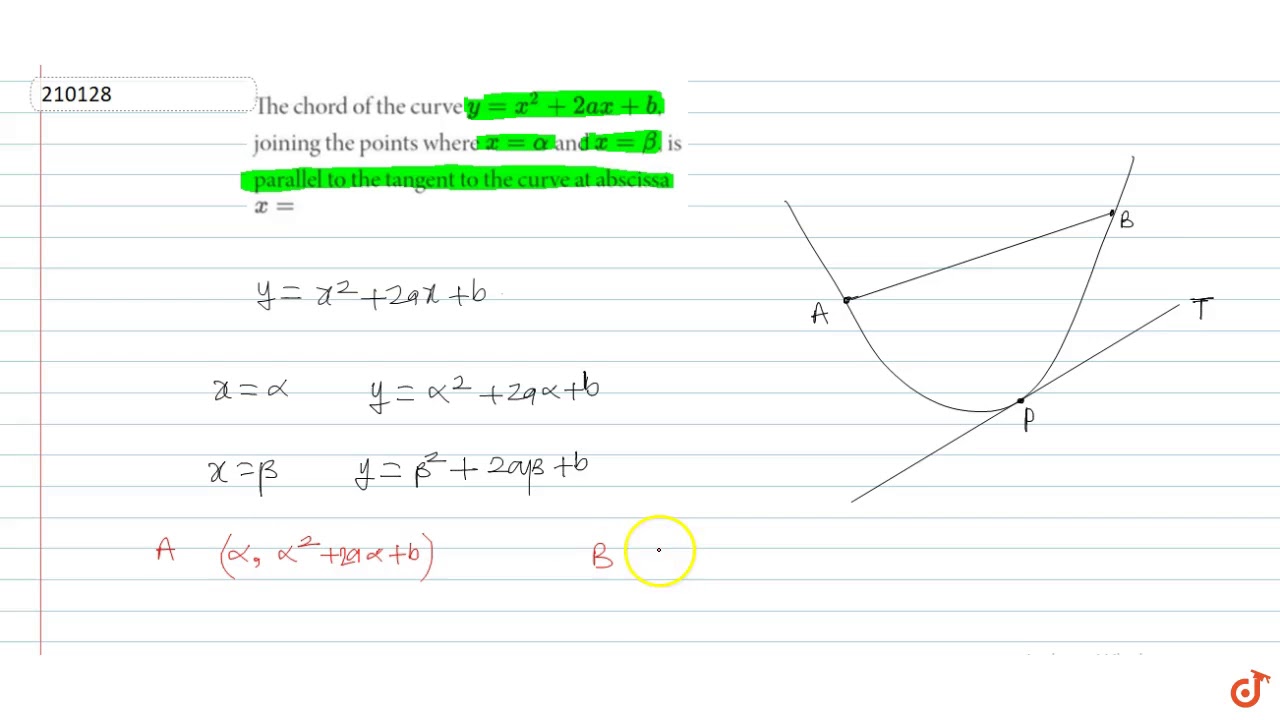 210128
The chord of the curve y = x² + 2ax + b,
joining the points where x = α and x = β, is
parallel to the tangent to the curve at abscissa
x =
y = x² + 2ax + b
x = α y = α² + 2aα + b
x = β y = β² + 2aβ + b
A (α, α² + 2aα + b) B
A
B
T
P